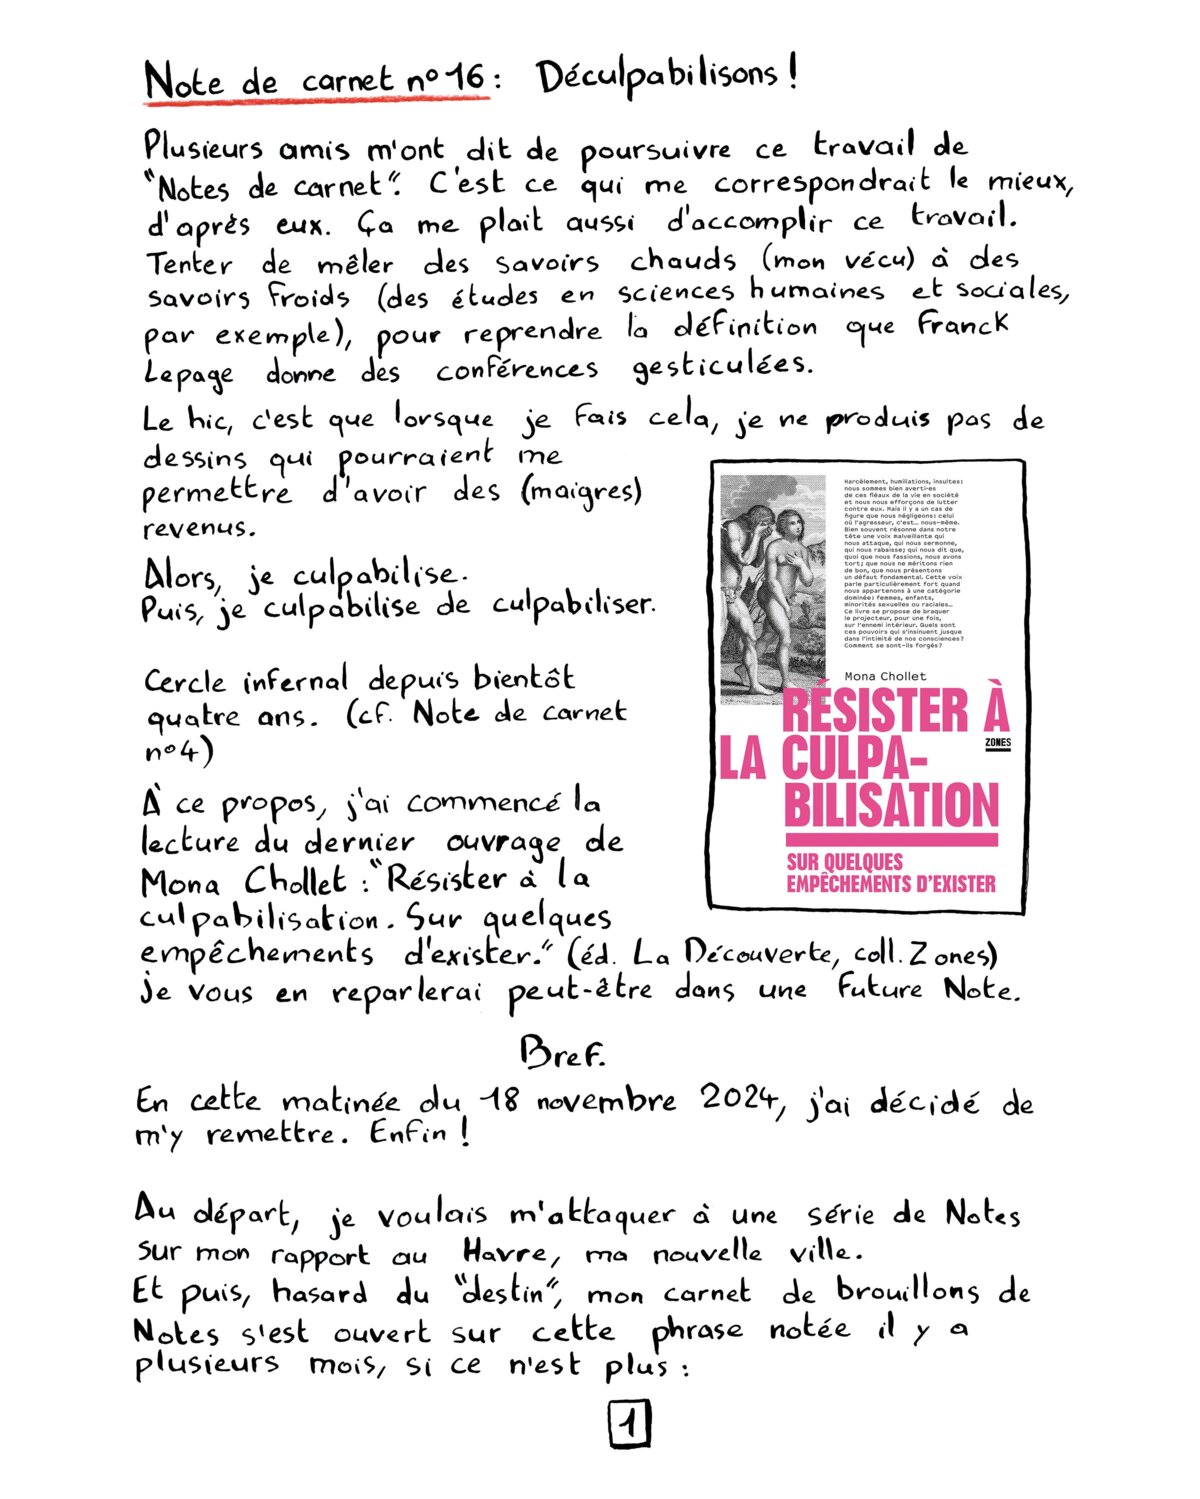 Note de carnet n°16 : Déculpabilisons !
Plusieurs amis m'ont dit de poursuivre ce travail de
"Notes de carnet". C'est ce qui me correspondrait le mieux,
d'après eux. Ça me plait aussi d'accomplir ce travail.
Tenter de mêler des savoirs chauds (mon vécu) à des
savoirs froids (des études en sciences humaines et sociales,
par exemple), pour reprendre la définition que Franck
Lepage donne des conférences gesticulées.
Le hic, c'est que lorsque je fais cela, je ne produis pas de
dessins qui pourraient me
permettre d'avoir des (maigres)
revenus.
Alors, je culpabilise.
Puis, je culpabilise de culpabiliser.
Cercle infernal depuis bientôt
quatre ans. (cf. Note de carnet
n°4)
À ce propos, j'ai commencé la
lecture du dernier ouvrage de
Mona Chollet : "Résister à la
culpabilisation. Sur quelques
empêchements d'exister." (éd. La Découverte, coll. Zones)
je vous en reparlerai peut-être dans une future Note.
Harcèlement, humiliations, insultes:
nous sommes bien averti·es
de ces fléaux de la vie en société
et nous nous efforçons de lutter
contre eux. Mais il y a un cas de
figure que nous négligeons: celui
où l'agresseur, c'est… nous-même.
Bien souvent résonne dans notre
tête une voix malveillante qui
nous attaque, qui nous sermonne,
qui nous rabaisse; qui nous dit que,
quoi que nous fassions, nous avons
tort; que nous ne méritons rien
de bon, que nous présentons
un défaut fondamental. Cette voix
parle particulièrement fort quand
nous appartenons à une catégorie
dominée: femmes, enfants,
minorités sexuelles ou raciales…
Ce livre se propose de braquer
le projecteur, pour une fois,
sur l'ennemi intérieur. Quels sont
ces pouvoirs qui s'insinuent jusque
dans l'intimité de nos consciences?
Comment se sont-ils forgés?
Mona Chollet
RÉSISTER À
LA CULPA-
BILISATION
ZONES
SUR QUELQUES
EMPÊCHEMENTS D'EXISTER
Bref.
En cette matinée du 18 novembre 2024, j'ai décidé de
m'y remettre. Enfin !
Au départ, je voulais m'attaquer à une série de Notes
sur mon rapport au Havre, ma nouvelle ville.
Et puis, hasard du "destin", mon carnet de brouillons de
Notes s'est ouvert sur cette phrase notée il y a
plusieurs mois, si ce n'est plus :
1